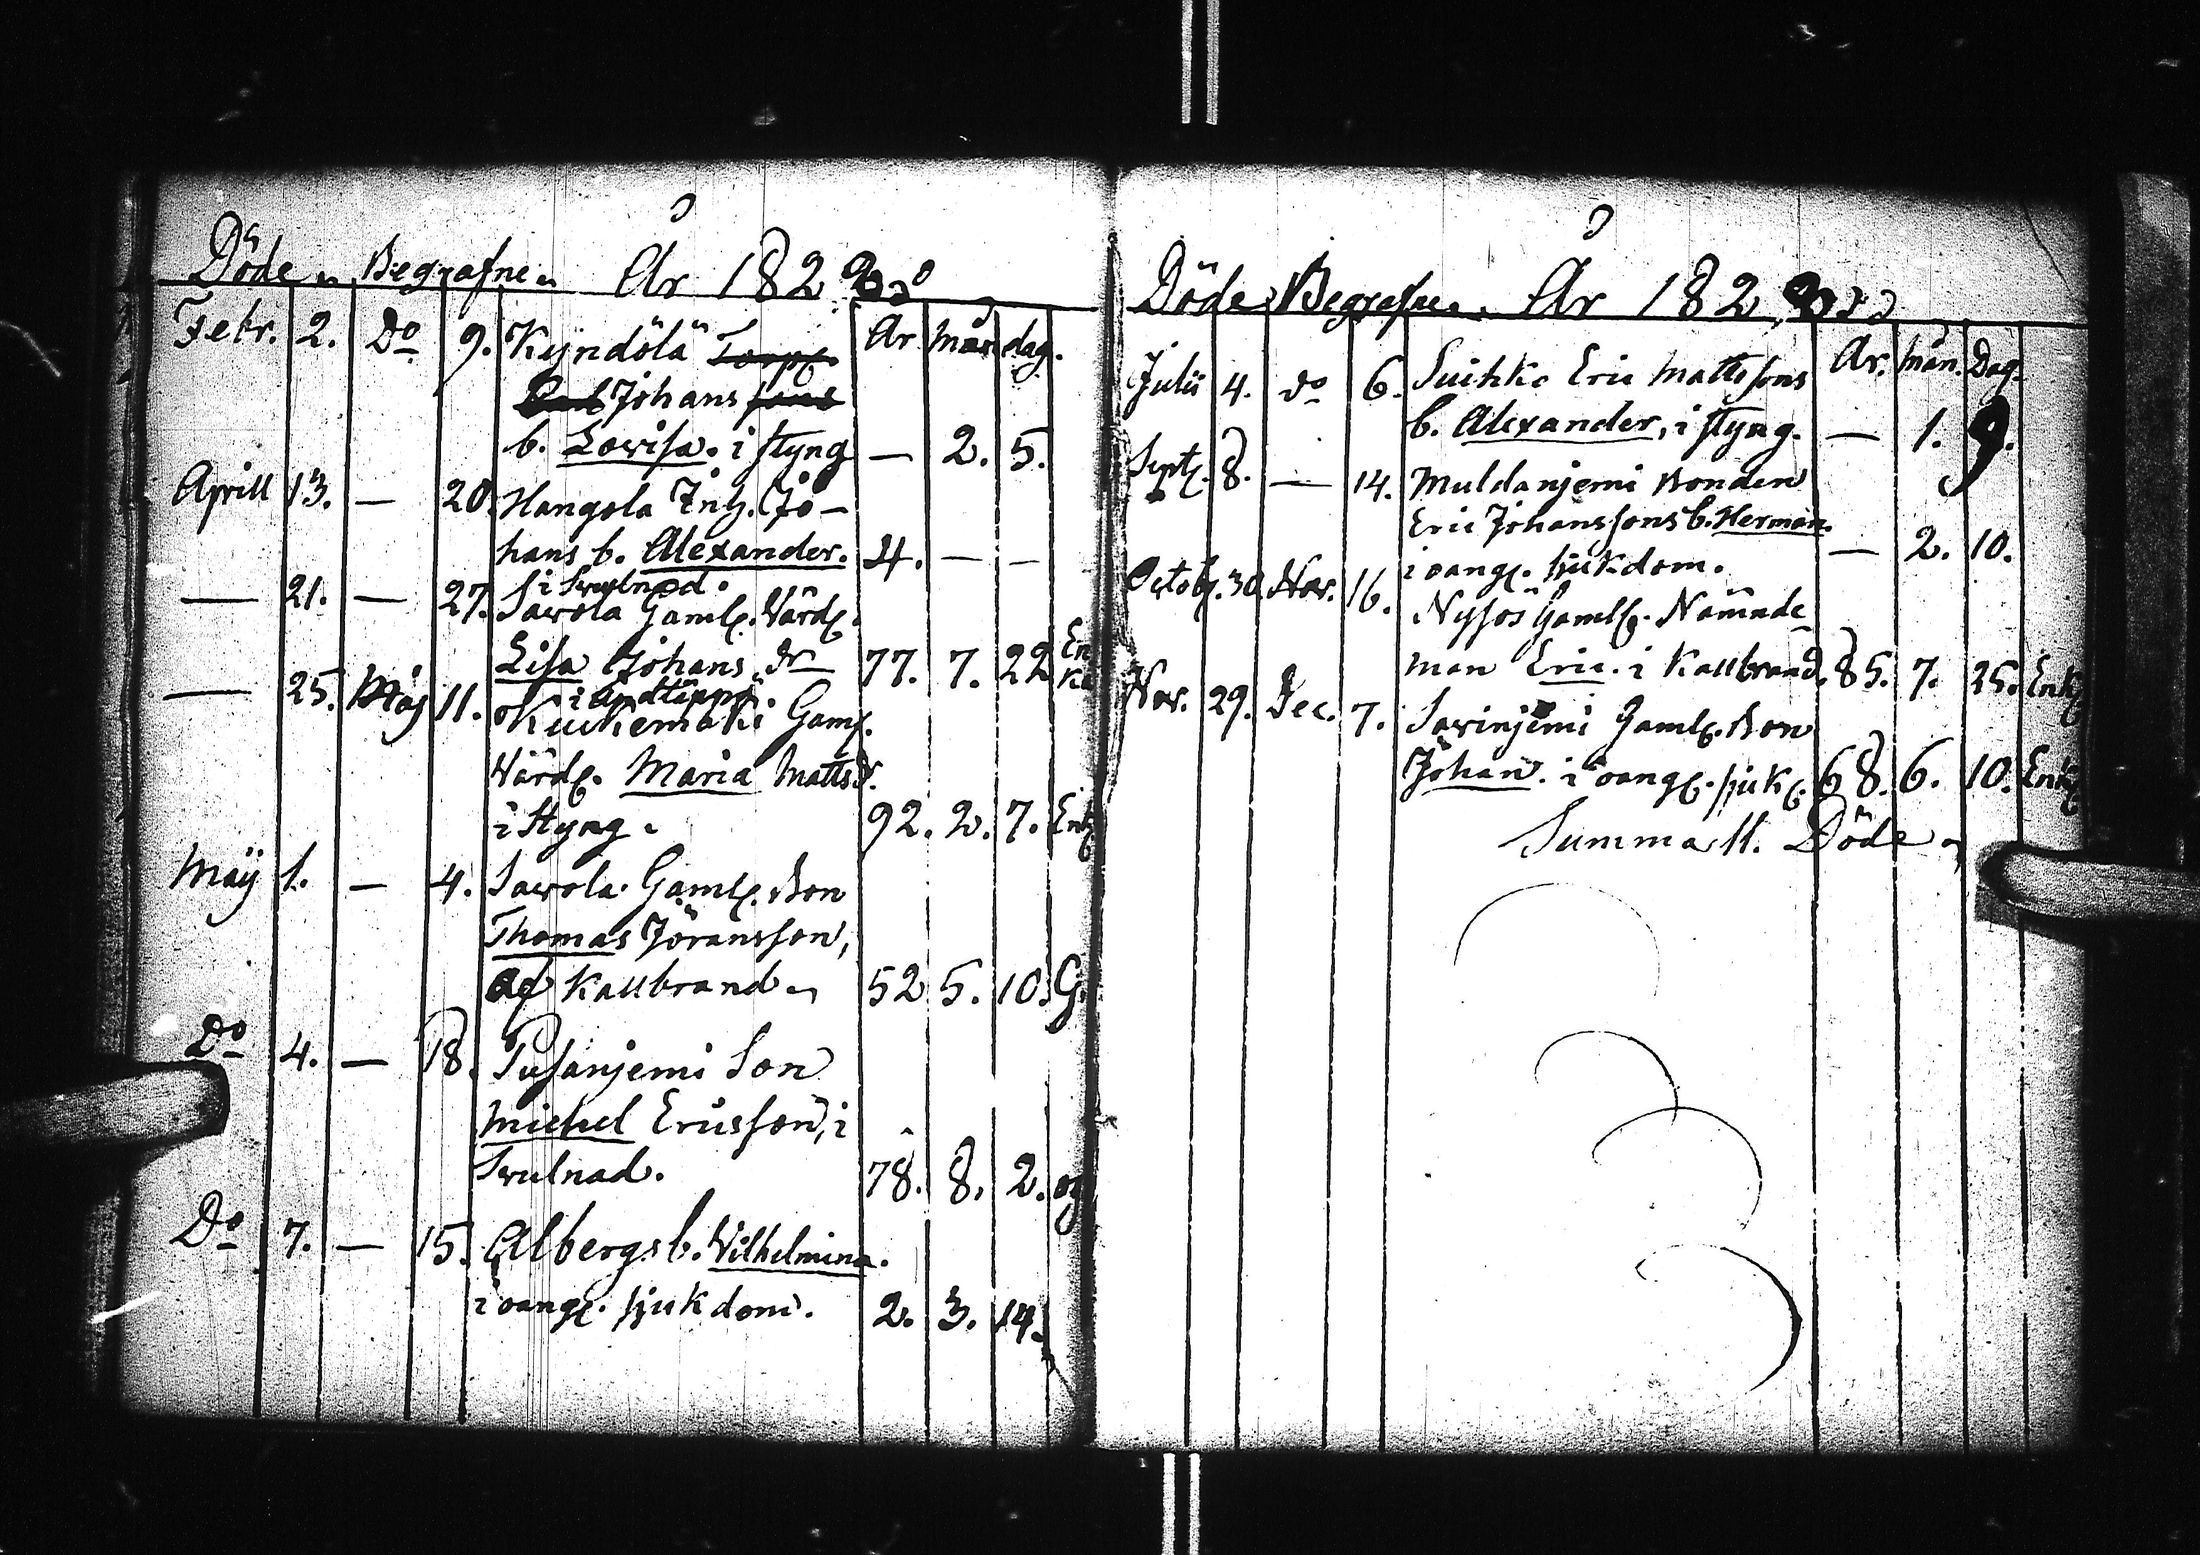 Döde Begrafne År 182
År mån dag.
Febr. 2. Do 9. Kyndölä Torp.
Johans sons
b. Lovisa. i styng — 2. 5.
Aprill 13. — 20. Hangola Inh. Jo-
hans b. Alexander. 4. — —
i Swulnad.
— 21. — 27. Savola Gaml. Värd.
Lisa Johans dr 77. 7. 22 Enka
i
— 25. Maj 11. Kuckemäki Gaml.
Värd. Maria Mattsd.
i Styng. 92. 2. 7. Enk
Maij 1. — 4. Savola Gaml. Bon
Thomas Jöransson,
af Kallbrand 52 5. 10. G.
Do 4. — 18. Pusanjemi Son
Michel Ericsson, i
Swulnad. 78. 8. 2. og
Do 7. — 15. Albergs b. Wilhelmina.
i oang. sjukdom. 2. 3. 14.
Döde Begrafne. År 182
År. mån. Dag.
Julii 4. do 6. Suikko Eric Mattssons
b. Alexander, i styng. — 1. 9.
Sept. 8. — 14. Muldanjemi Bonden
Eric Johanssons b. Herman.
i oang. sjukdom. — 2. 10.
Octob. 30. Nov. 16. Nysos Gaml. Nämnde
man Eric. i Kallbrand. 85. 7. 25. Enk
Nov. 29. Dec. 7. Savinjemi Gaml. Bon
Johan. i oang. sjuk. 68. 6. 10. Enk
Summa 11. Döde